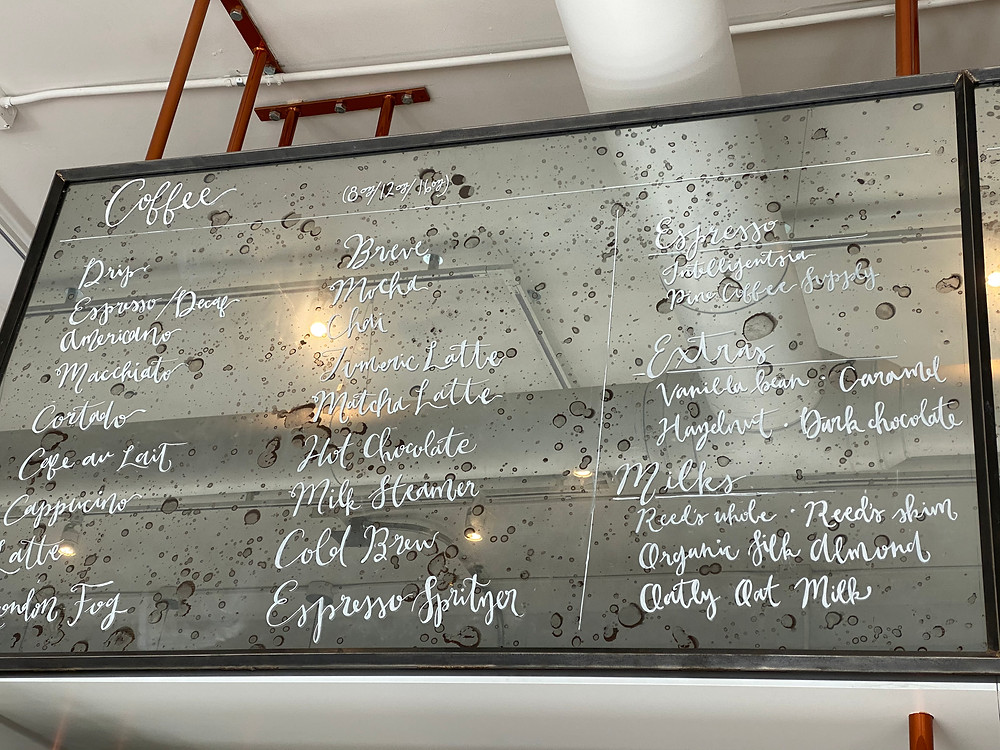 Coffee (8oz/12oz/16oz)
Drip
Espresso/Decaf
Americano
Macchiato
Cortado
Cafe au Lait
Cappucino
Latte
London Fog
Breve
Mocha
Chai
Tumeric Latte
Matcha Latte
Hot Chocolate
Milk Steamer
Cold Brew
Espresso Spritzer
Espresso
Intelligentsia
Pine Coffee Supply
Extras
Vanilla bean · Caramel
Hazelnut · Dark chocolate
Milks
Reed's whole · Reed's skim
Organic Silk Almond
Oatly Oat Milk